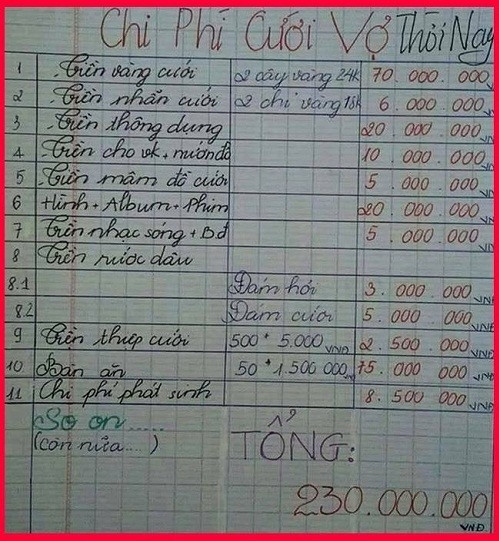 Chi Phí Cưới Vợ Thời Nay
1 Tiền vàng cưới 2 cây vàng 24k 70.000.000 VNĐ
2 Tiền nhẫn cưới 2 chỉ vàng 18k 6.000.000 VNĐ
3 Tiền thông dụng 20.000.000 VNĐ
4 Tiền cho vk + mướn đồ 10.000.000 VNĐ
5 Tiền mâm đồ cưới 5.000.000 VNĐ
6 Hình + Album + Phim 20.000.000 VNĐ
7 Tiền nhạc sống + Bđ 5.000.000 VNĐ
8 Tiền rước dâu
8.1 Đám hỏi 3.000.000 VNĐ
8.2 Đám cưới 5.000.000 VNĐ
9 Tiền thiệp cưới 500 * 5.000 VNĐ 2.500.000 VNĐ
10 Bàn ăn 50 * 1.500.000 VNĐ 75.000.000 VNĐ
11 Chi phí phát sinh 8.500.000 VNĐ
So on.....
(còn nữa....) TỔNG:
230.000.000 VNĐ.